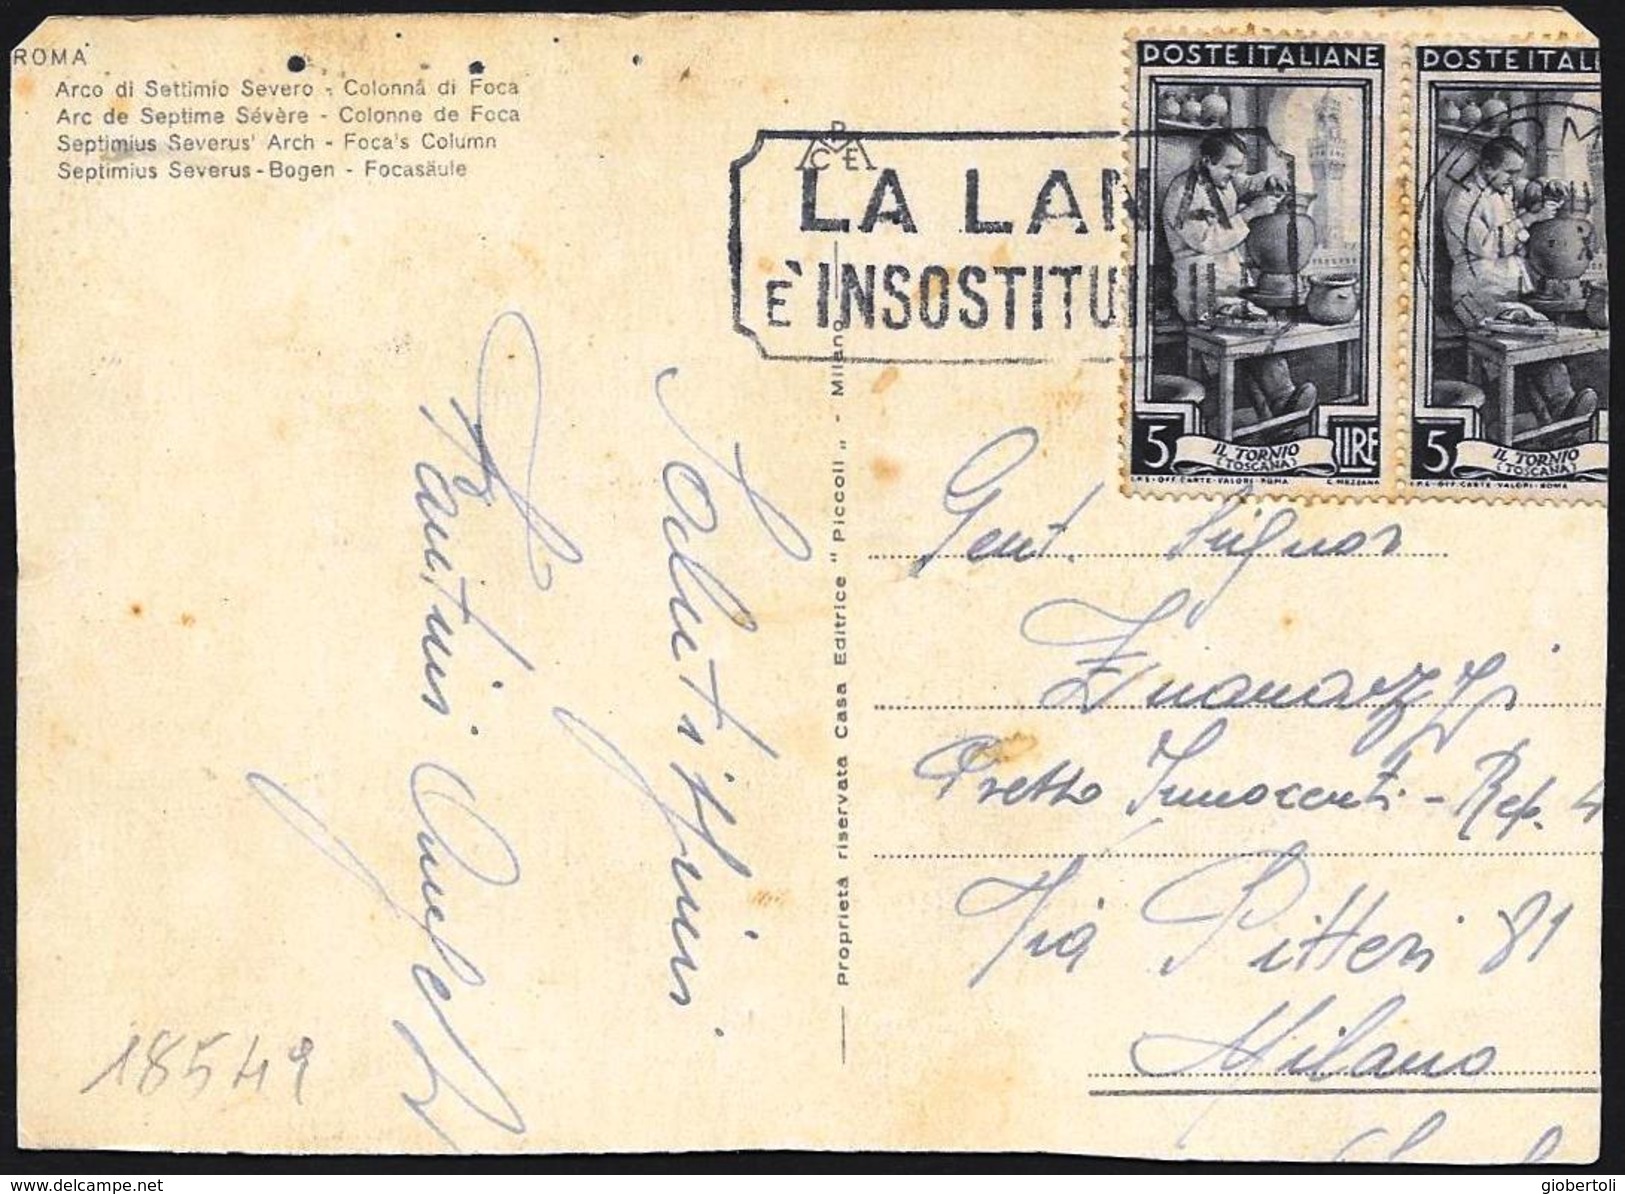 ROMA
Arco di Settimio Severo - Colonna di Foca
Arc de Septime Sévère - Colonne de Foca
Septimius Severus' Arch - Foca's Column
Septimius Severus-Bogen - Focasäule
LA LANA
È INSOSTITUIBILE
POSTE ITALIANE
5 LIRE
IL TORNIO
(TOSCANA)
I.P.S.-OFF. CARTE-VALORI-ROMA C. MEZZANA
POSTE ITALI
5
IL TORNIO
(TOSCANA)
I.P.S.-OFF. CARTE-VALORI-ROMA
Proprietá riservata Casa Editrice "Piccoli„ - Milano
Salutissimi
Gent. Signor
Presso Innocenti - Rep. 4
Via Pitteri 81
Milano
18549
delcampe.net
giobertoli